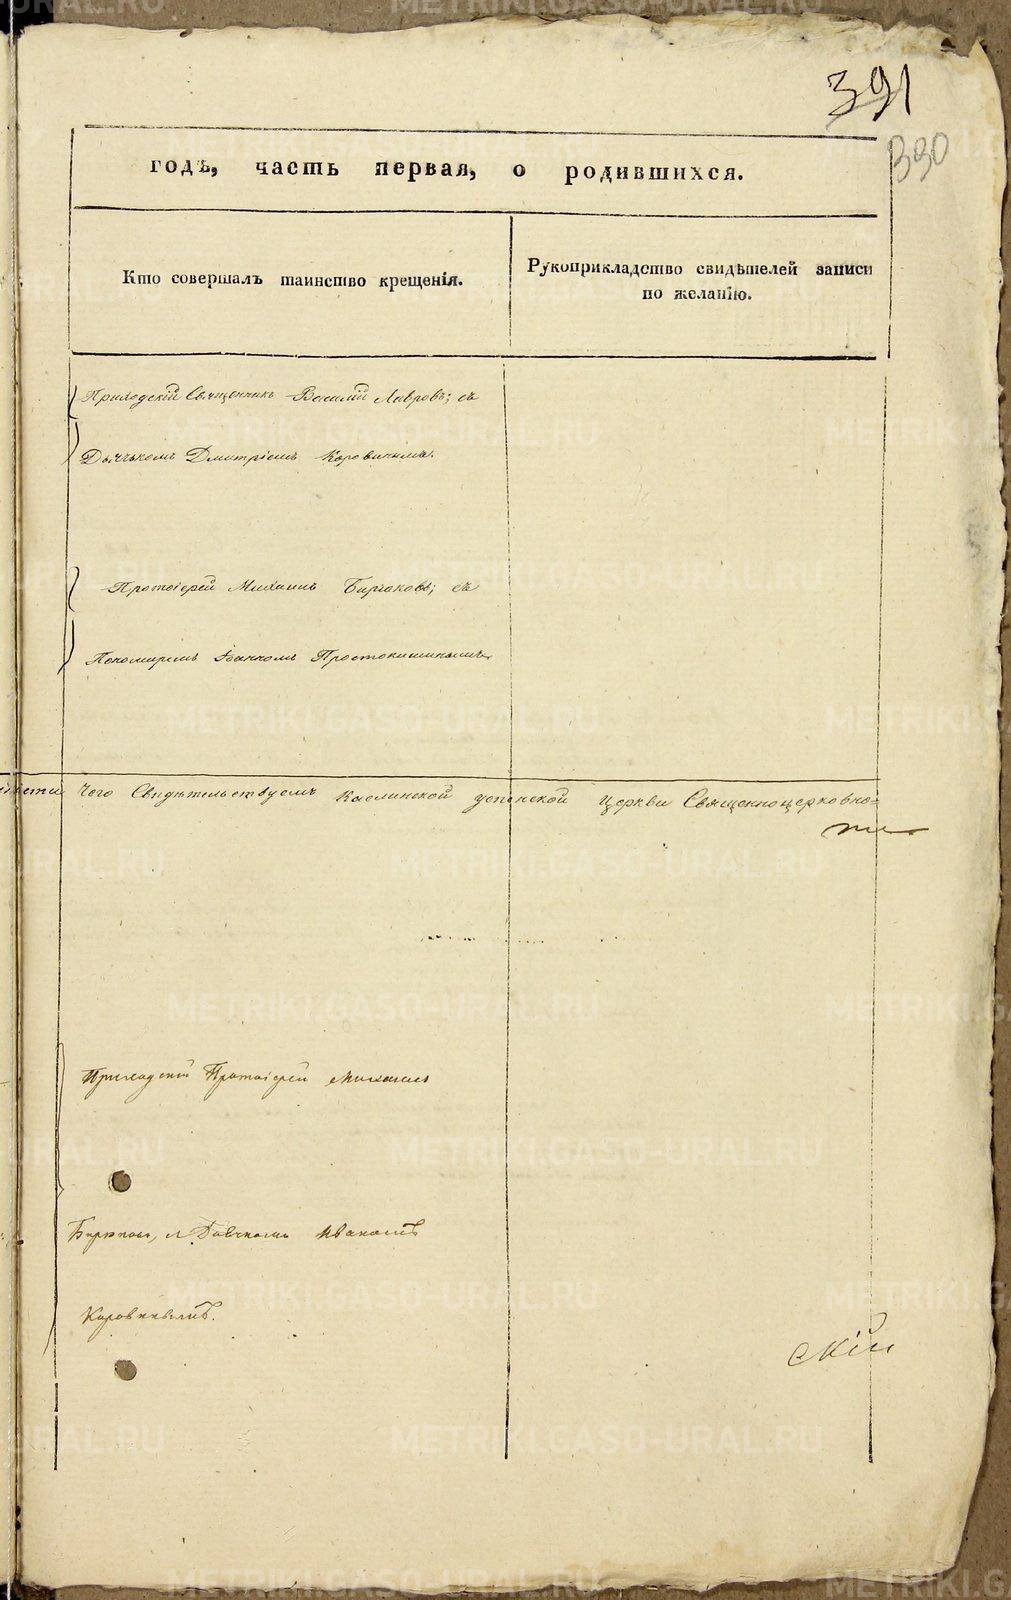 391
390
годъ, часть первая, о родившихся.
Кто совершалъ таинство крещенія.
Рукоприкладство свидѣтелей записи
по желанію.
Приходскій Священникъ Василій Лавровъ; съ
Дьячькомъ Дмитріемъ Коровинымъ.
Протоіерей Михаилъ Бирюковъ; съ
Пономаремъ Іоанномъ Простокишинымъ
Чего Свидѣтельствуемъ Каслинской успенской Церкви Священноцерковно=
Приходскій Протоіерей Михаилъ
Бирюковъ, и Дьячкомъ Иваномъ
Коровинымъ.
скій
METRIKI.GASO-URAL.RU